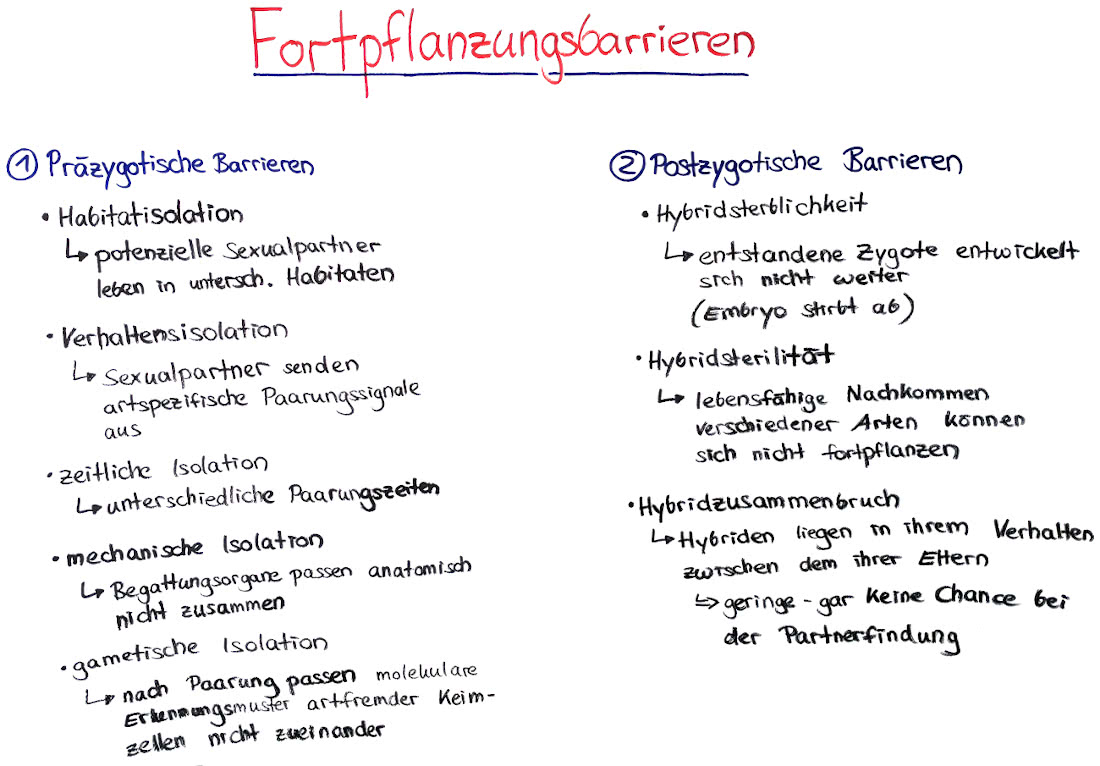 Fortpflanzungsbarrieren
① Präzygotische Barrieren
• Habitatisolation
↳ potenzielle Sexualpartner
leben in untersch. Habitaten
• Verhaltensisolation
↳ Sexualpartner senden
artspezifische Paarungssignale
aus
• zeitliche Isolation
↳ unterschiedliche Paarungszeiten
• mechanische Isolation
↳ Begattungsorgane passen anatomisch
nicht zusammen
• gametische Isolation
↳ nach Paarung passen molekulare
Erkennungsmuster artfremder Keim-
zellen nicht zueinander
② Postzygotische Barrieren
• Hybridsterblichkeit
↳ entstandene Zygote entwickelt
sich nicht weiter
(Embryo stirbt ab)
• Hybridsterilität
↳ lebensfähige Nachkommen
verschiedener Arten können
sich nicht fortpflanzen
• Hybridzusammenbruch
↳ Hybriden liegen in ihrem Verhalten
zwischen dem ihrer Eltern
↳ geringe - gar keine Chance bei
der Partnerfindung